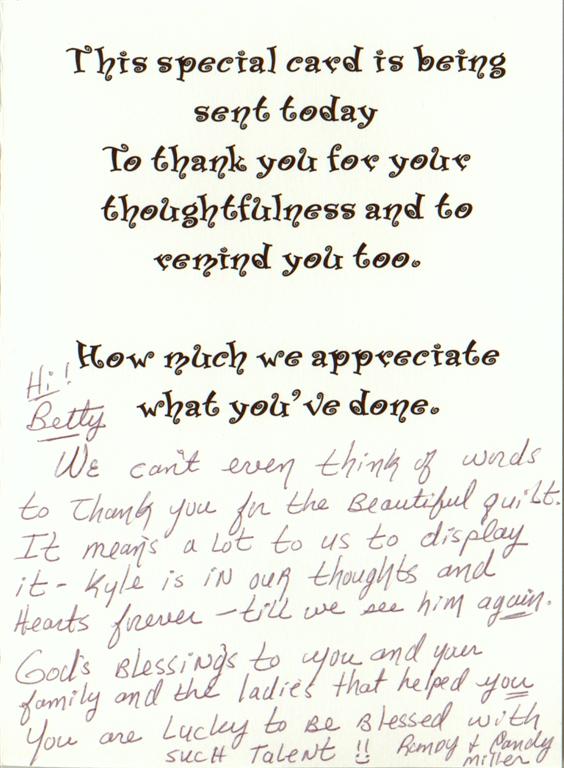 This special card is being
sent today
To thank you for your
thoughtfulness and to
remind you too.
How much we appreciate
what you've done.
Hi!
Betty
We can't even think of words
to Thank you for the Beautiful quilt.
It means a Lot to us to display
it - Kyle is in our thoughts and
Hearts forever - till we see him again.
God's Blessings to you and your
family and the ladies that helped you
You are Lucky to Be Blessed with
such Talent !! Randy + Candy
Miller